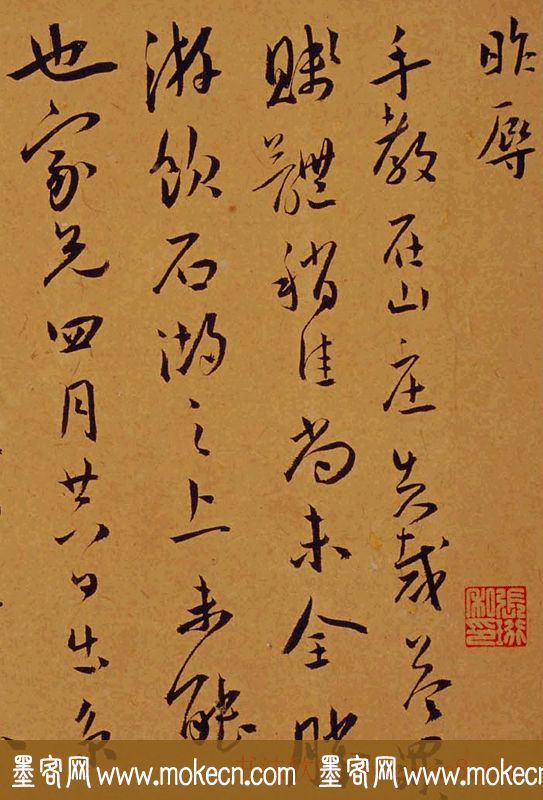 昨辱
手教在山庄失裁答罪
賤體稍佳尚未全勝
游飲石湖之上未能
也家兄四月廿八日出京
墨客网 www.mokecn.com 墨客网 www.mokecn.com